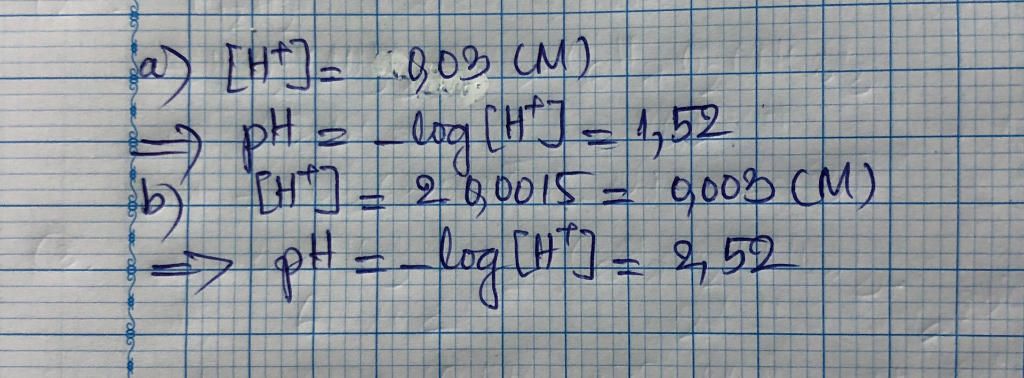 a) [H⁺] = 0,03 (M)
⟹ pH = -log[H⁺] = 1,52
b) [H⁺] = 2 0,0015 = 0,003 (M)
⟹ pH = -log[H⁺] = 2,52